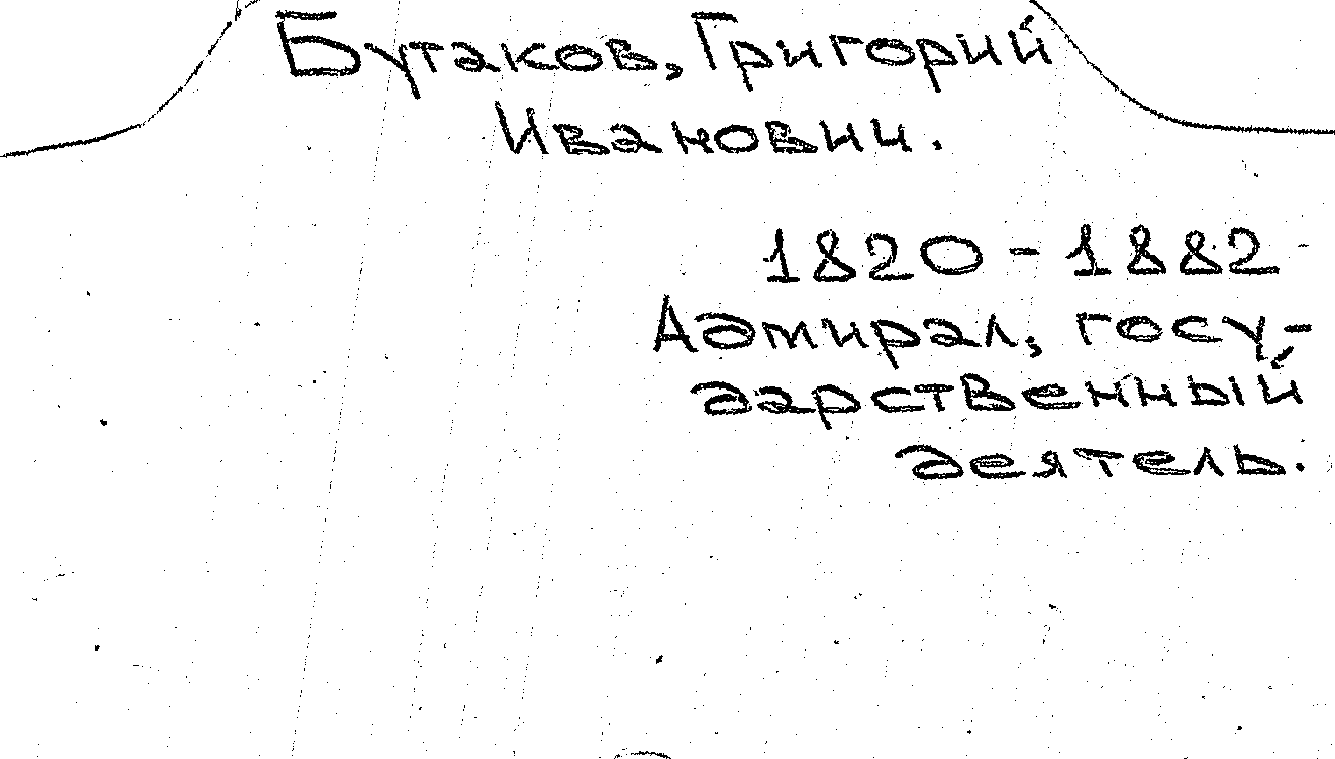 Бутаков, Григорий
Иванович.
1820-1882
Адмирал, госу-
дарственный
деятель.